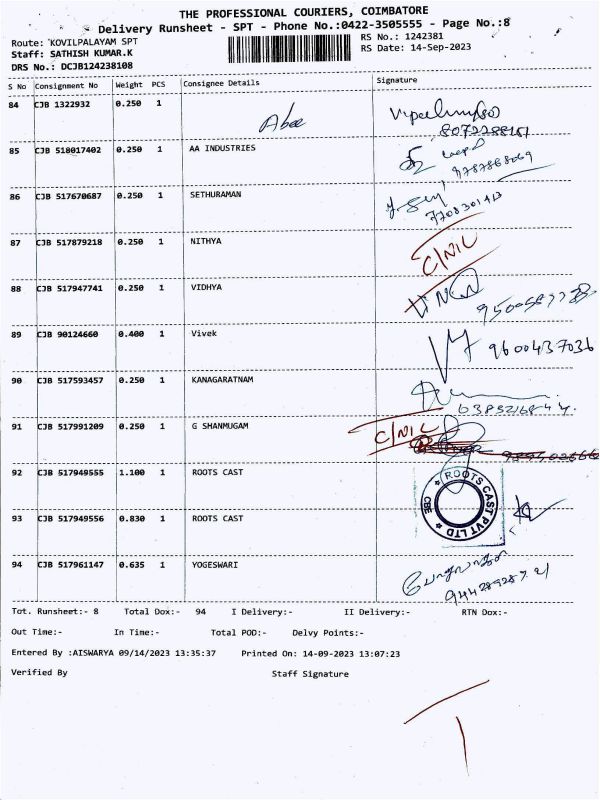 THE PROFESSIONAL COURIERS, COIMBATORE
Delivery Runsheet - SPT - Phone No.:0422-3505555 - Page No.:8
Route: KOVILPALAYAM SPT
RS No.: 1242381
Staff: SATHISH KUMAR.K
RS Date: 14-Sep-2023
DRS No.: DCJB124238108
S No Consignment No Weight PCS Consignee Details Signature
84 CJB 1322932 0.250 1
8072288151
85 CJB 518017402 0.250 1 AA INDUSTRIES
9787868069
86 CJB 517670687 0.250 1 SETHURAMAN
87 CJB 517879218 0.250 1 NITHYA
C/NIL
88 CJB 517947741 0.250 1 VIDHYA
89 CJB 90124660 0.400 1 Vivek
9600437036
90 CJB 517593457 0.250 1 KANAGARATNAM
91 CJB 517991209 0.250 1 G SHANMUGAM
C/NIL
92 CJB 517949555 1.100 1 ROOTS CAST
ROOTS CAST PVT LTD
CBE
93 CJB 517949556 0.830 1 ROOTS CAST
94 CJB 517961147 0.635 1 YOGESWARI
Tot. Runsheet:- 8 Total Dox:- 94 I Delivery:- II Delivery:- RTN Dox:-
Out Time:- In Time:- Total POD:- Delvy Points:-
Entered By :AISWARYA 09/14/2023 13:35:37 Printed On: 14-09-2023 13:07:23
Verified By Staff Signature